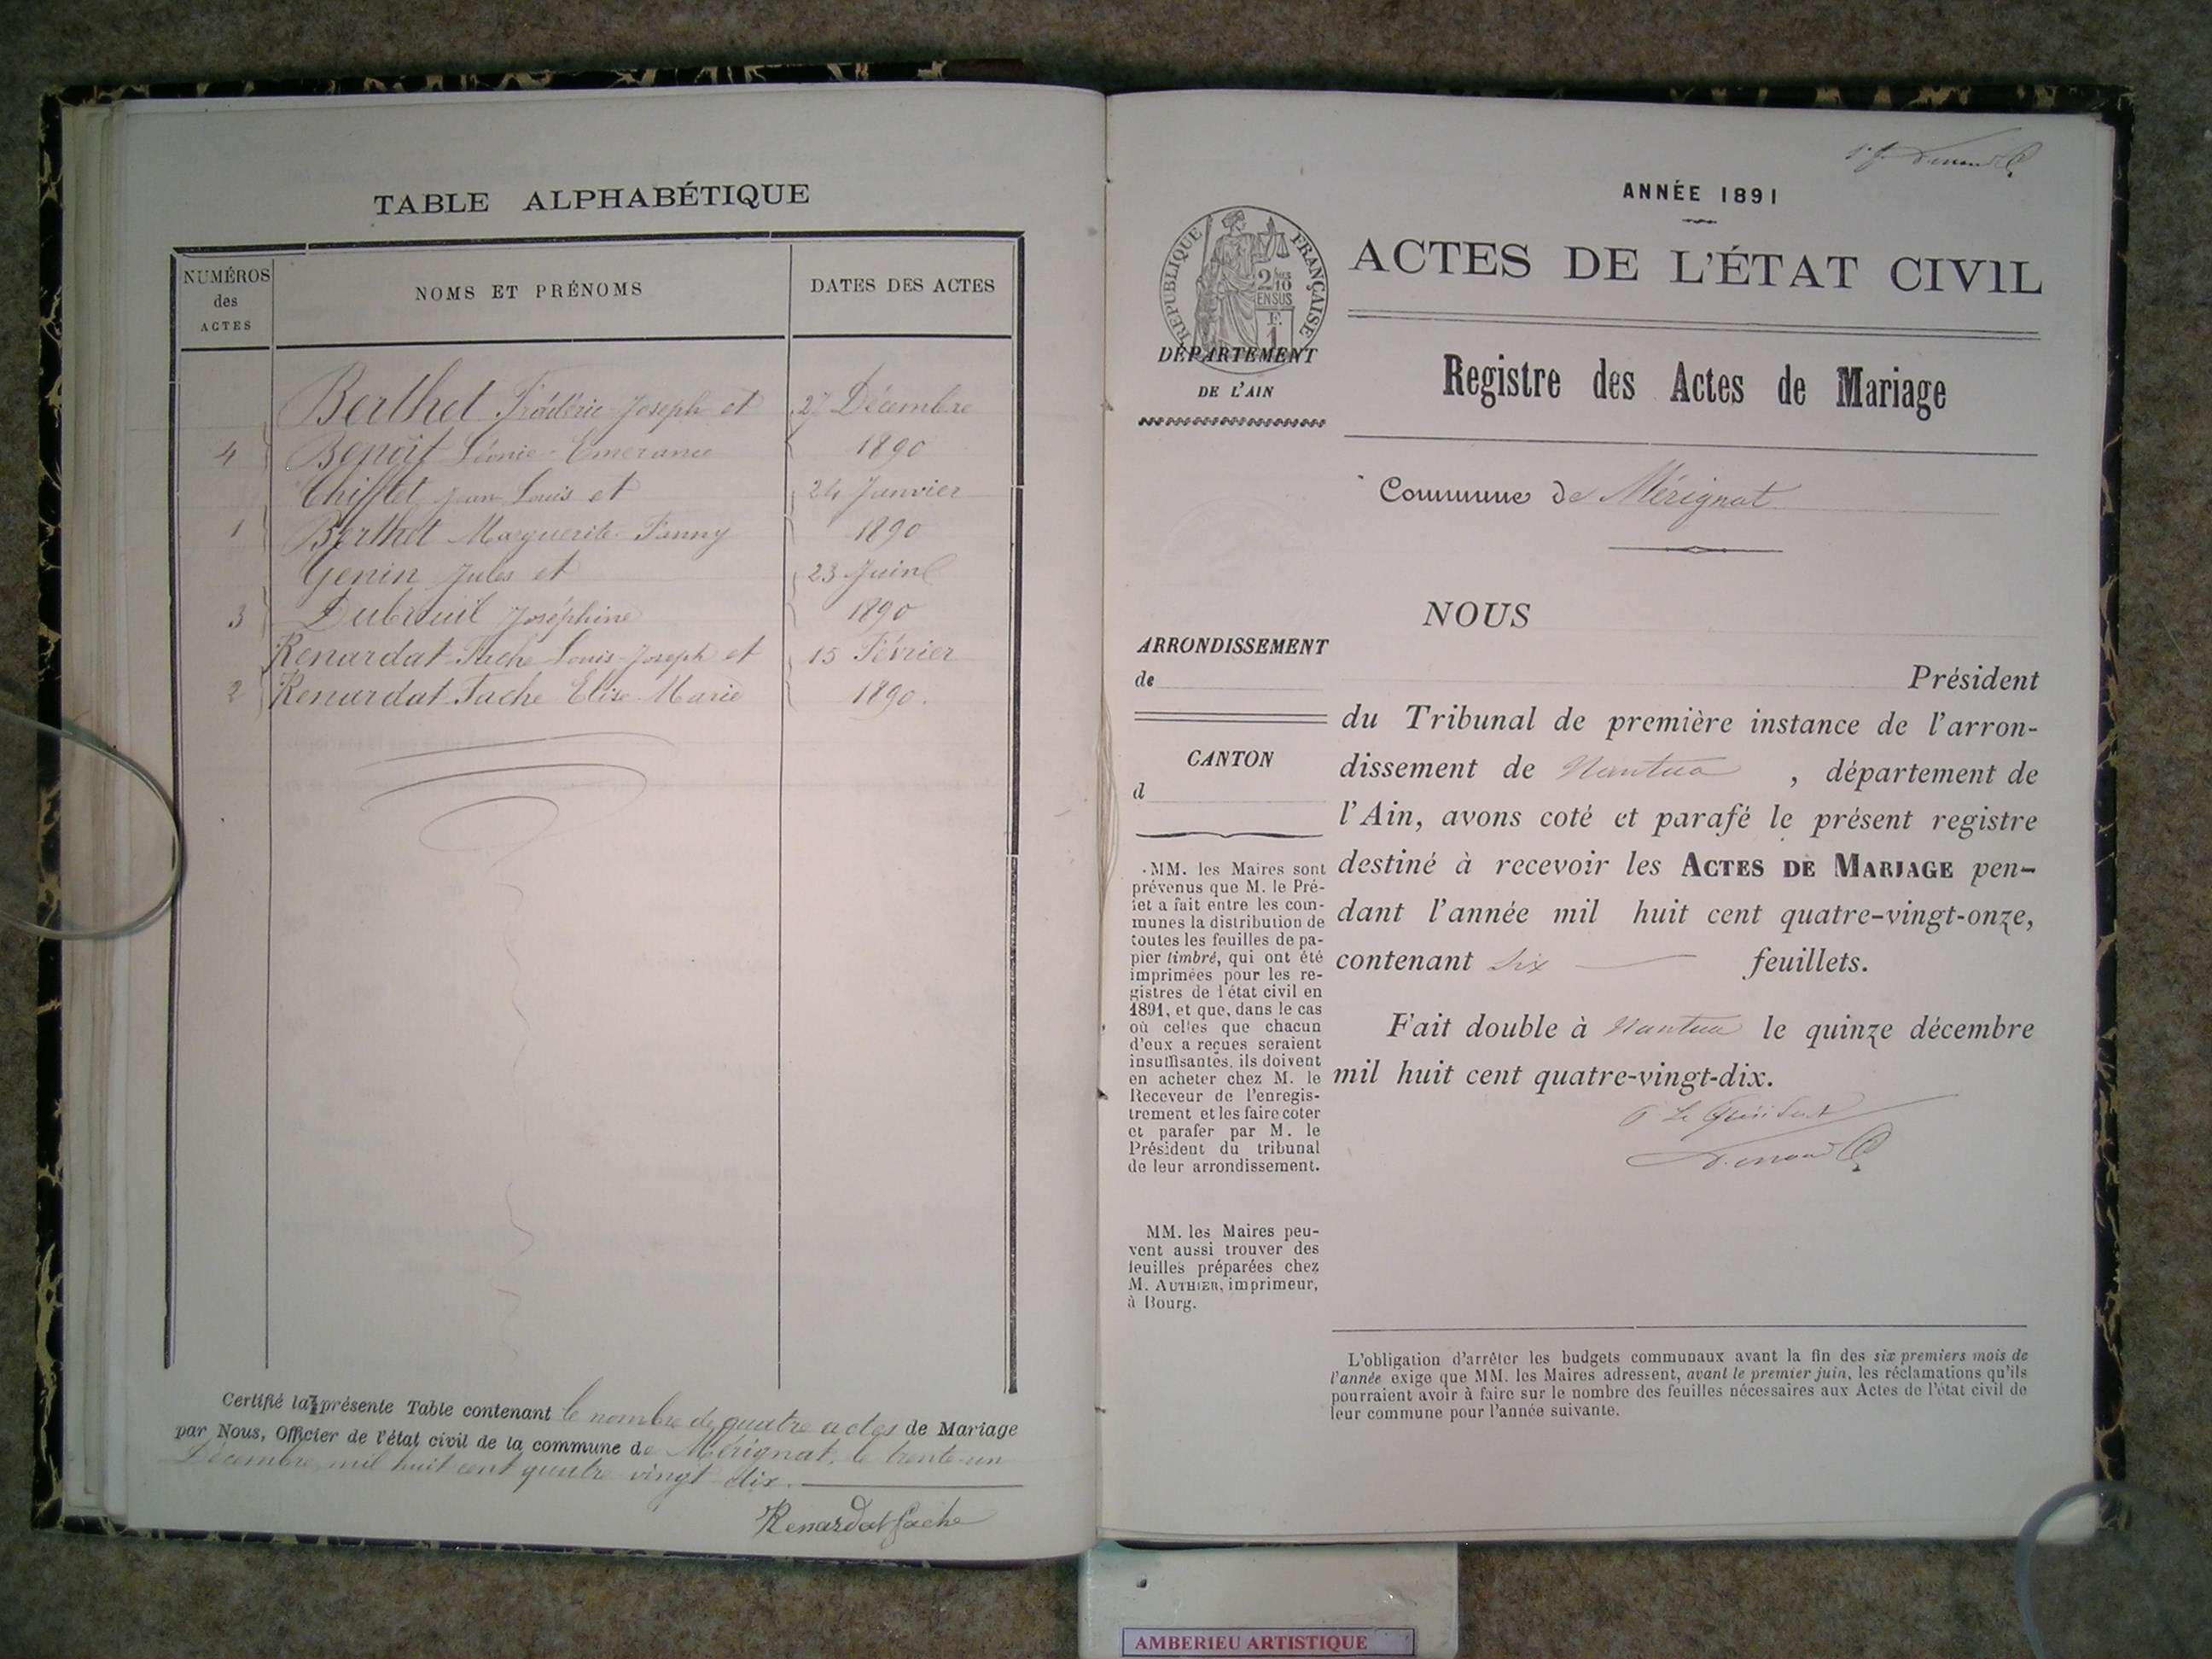 TABLE ALPHABÉTIQUE
NUMÉROS
des
ACTES
NOMS ET PRÉNOMS
DATES DES ACTES
Berthet Frédéric Joseph et 27 Décembre
4 Benoît Léonie Emerance 1890
Chifflet Jean Louis et 24 Janvier
1 Berthet Marguerite Fanny 1890
Genin Jules et 23 Juin
3 Dubreuil Joséphine 1890
Renardat Fache Louis Joseph et 15 Février
2 Renardat Fache Elise Marie 1890.
Certifié la présente Table contenant le nombre de quatre actes de Mariage
par Nous, Officier de l'état civil de la commune de Mérignat, le trente-un
Décembre mil huit cent quatre vingt dix.
Renardat fache
ANNÉE 1891
RÉPUBLIQUE FRANÇAISE
2/10
EN SUS
F.
1
ACTES DE L'ÉTAT CIVIL
DÉPARTEMENT
DE L'AIN
Registre des Actes de Mariage
Commune de Mérignat
ARRONDISSEMENT
de
CANTON
d
MM. les Maires sont
prévenus que M. le Pré-
fet a fait entre les com-
munes la distribution de
toutes les feuilles de pa-
pier timbré, qui ont été
imprimées pour les re-
gistres de l'état civil en
1891, et que, dans le cas
où celles que chacun
d'eux a reçues seraient
insuffisantes, ils doivent
en acheter chez M. le
Receveur de l'enregis-
trement et les faire coter
et parafer par M. le
Président du tribunal
de leur arrondissement.
MM. les Maires peu-
vent aussi trouver des
feuilles préparées chez
M. AUTHIER, imprimeur,
à Bourg.
NOUS
Président
du Tribunal de première instance de l'arron-
dissement de Nantua, département de
l'Ain, avons coté et parafé le présent registre
destiné à recevoir les ACTES DE MARIAGE pen-
dant l'année mil huit cent quatre-vingt-onze,
contenant six feuillets.
Fait double à Nantua le quinze décembre
mil huit cent quatre-vingt-dix.
Le Président
L'obligation d'arrêter les budgets communaux avant la fin des six premiers mois de
l'année exige que MM. les Maires adressent, avant le premier juin, les réclamations qu'ils
pourraient avoir à faire sur le nombre des feuilles nécessaires aux Actes de l'état civil de
leur commune pour l'année suivante.
AMBERIEU ARTISTIQUE